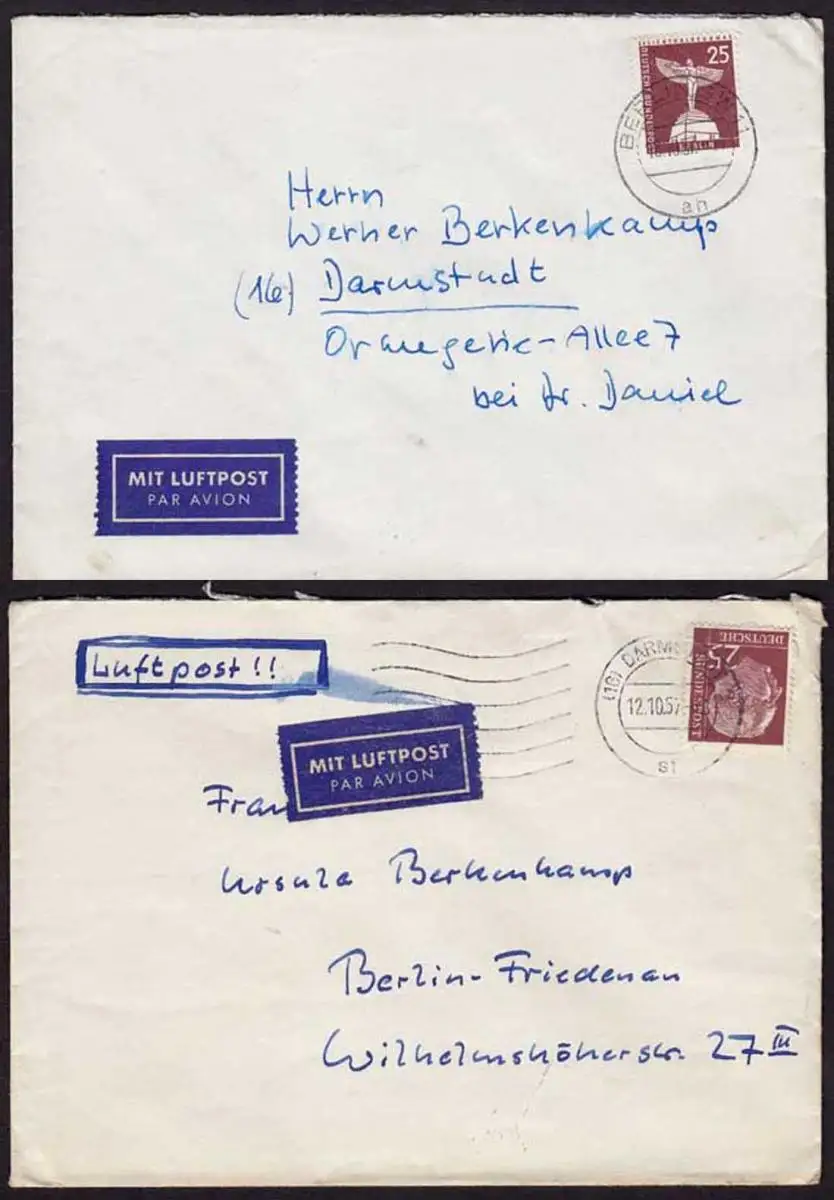 25
DEUTSCHE BUNDESPOST
BERLIN
BERLIN
an
Herrn
Werner Berkenkamp
(16) Darmstadt
Orangerie-Allee 7
bei Dr. Daniel
MIT LUFTPOST
PAR AVION
Luftpost!!
(16) DARMS
12.10.57
25
DEUTSCHE
BUNDESPOST
MIT LUFTPOST
PAR AVION
Frau
Ursula Berkenkamp
Berlin-Friedenau
Wilhelmshöherstr. 27 III